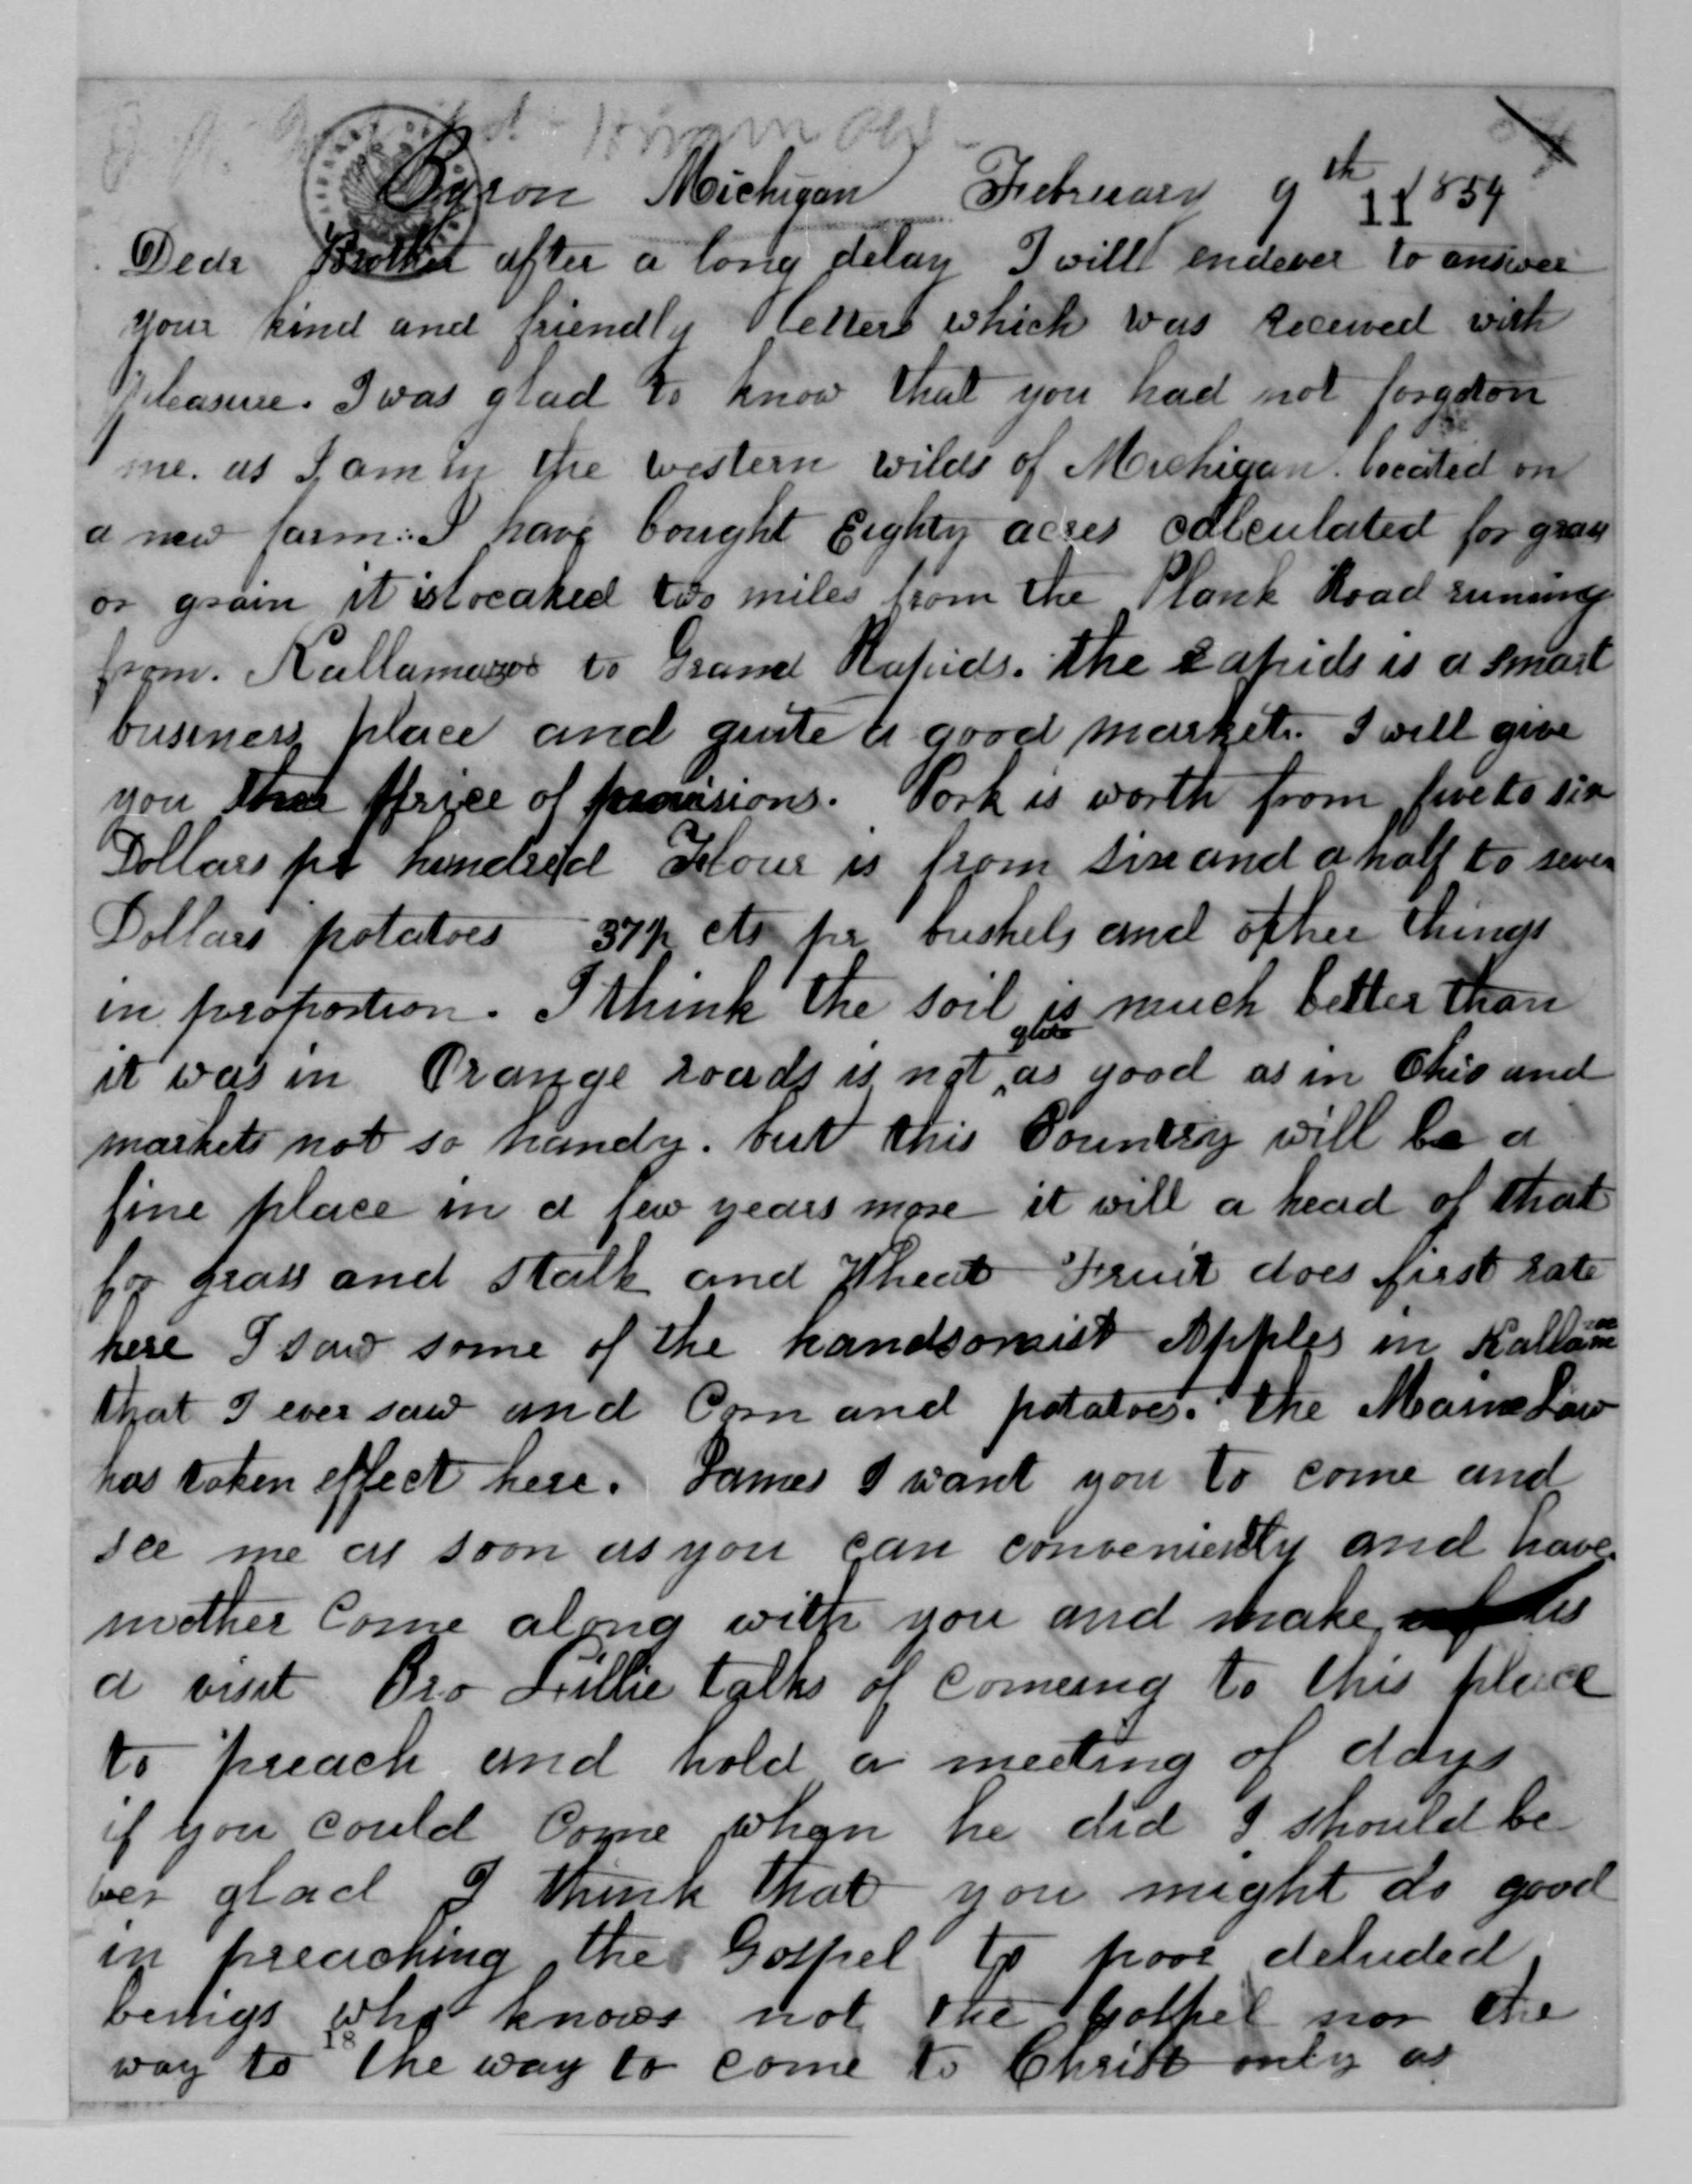 Byron Michigan February 9th 1854
11
Dear Brother after a long delay I will endever to answer
your kind and friendly letters which was received with
pleasure. I was glad to know that you had not forgoton
me. as I am in the western wilds of Michigan. located on
a new farm. I have bought Eighty acres calculated for grass
or grain it is located two miles from the Plank Road runing
from. Kallamazoo to Grand Rapids. the rapids is a smart
business place and quite a good market. I will give
you the price of provisions. Pork is worth from five to six
Dollars pr hundred Flour is from six and a half to seven
Dollars potatoes 37½ cts pr bushels and other things
in proportion. I think the soil is much better than
it was in Orange roads is not quite as good as in Ohio and
markets not so handy. but this Country will be a
fine place in a few years more it will a head of that
for grass and stalk and Wheat Fruit does first rate
here I saw some of the handsomist Apples in Kallamazoo
that I ever saw and Corn and potatoes. the Maine Law
has taken effect here. James I want you to come and
see me as soon as you can conveniently and have
mother Come along with you and make us
a visit Bro Lillie talks of comeing to this place
to preach and hold a meeting of days
if you could Come when he did I should be
ver glad I think that you might do good
in preaching the Gospel to poor deluded
beings who knows not the Gospel nor the
way to the way to come to Christ only as
18